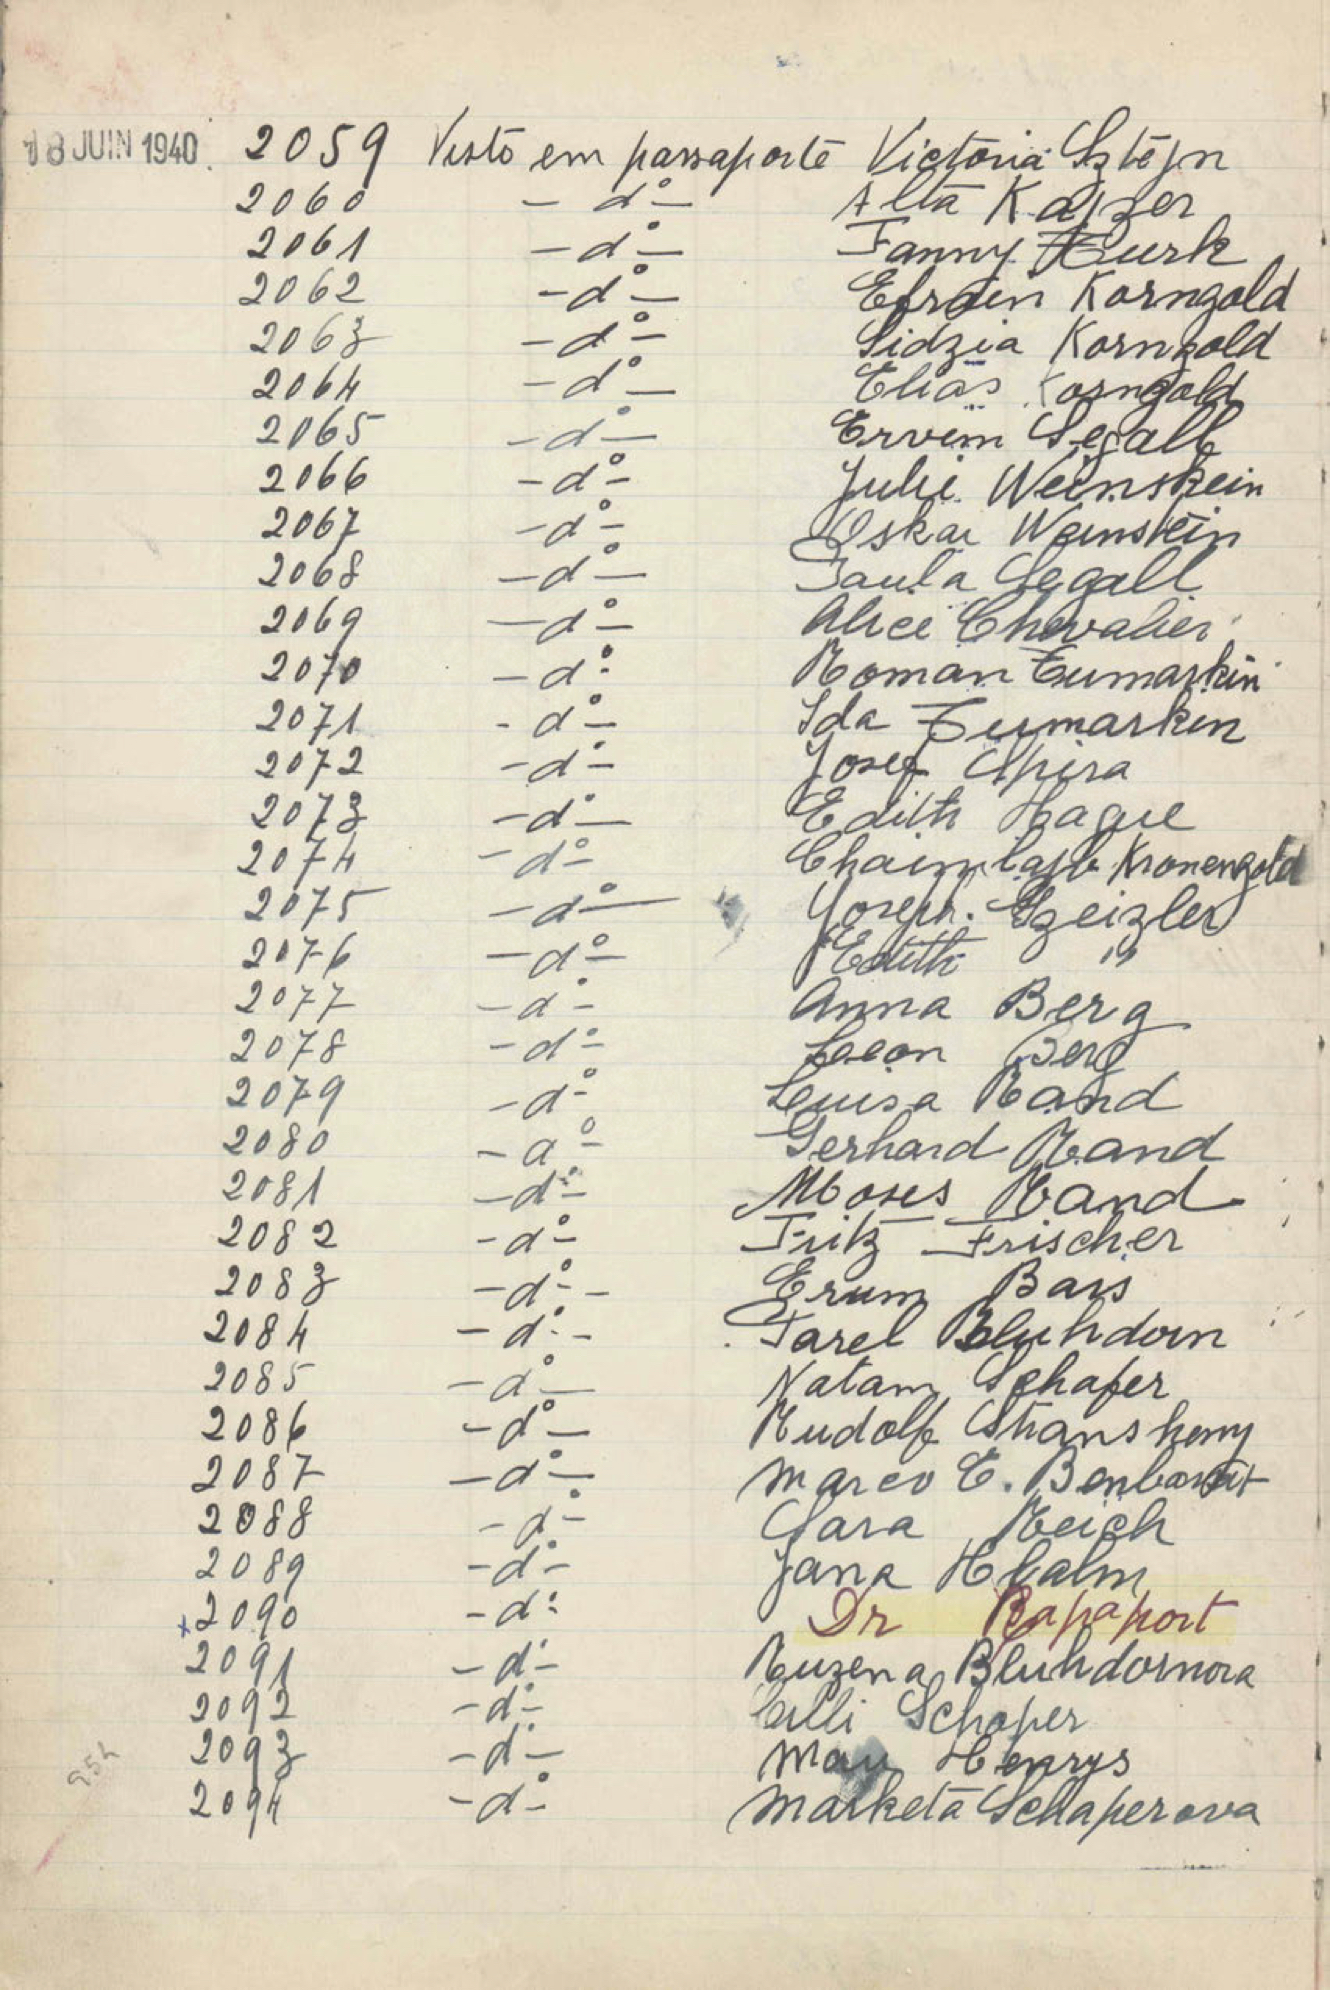 18 JUIN 1940. 2059 Visto em passaporte Victoria Sztejn
2060 - dº - Alta Kajzer
2061 - dº - Fanny Turk
2062 - dº - Efrain Korngold
2063 - dº - Lidzia Korngold
2064 - dº - Elias Korngold
2065 - dº - Ervem Segall
2066 - dº - Julie Weinstein
2067 - dº - Oskar Weinstein
2068 - dº - Paula Segall
2069 - dº - Alice Chevalier
2070 - dº - Roman Eumarkin
2071 - dº - Ida Tumarken
2072 - dº - Josef Spira
2073 - dº - Edith Hague
2074 - dº - Chaim Kronengold
2075 - dº - Joseph Szeizler
2076 - dº - Edith "
2077 - dº - Anna Berg
2078 - dº - Leon Berg
2079 - dº - Luisa Rand
2080 - dº - Gerhard Rand
2081 - dº - Moses Rand
2082 - dº - Fritz Frischer
2083 - dº - Bars
2084 - dº - Bluhdorn
2085 - dº - Natam Schafer
2086 - dº - Rudolf
2087 - dº - Marco E.
2088 - dº - Sara Reich
2089 - dº - Jana
x 2090 - dº - Dr Rapaport
2091 - dº - Ruzena Bluhdornova
2092 - dº - Cilli Schafer
2093 - dº - Henrys
254
2094 - dº - Marketa Schaferova